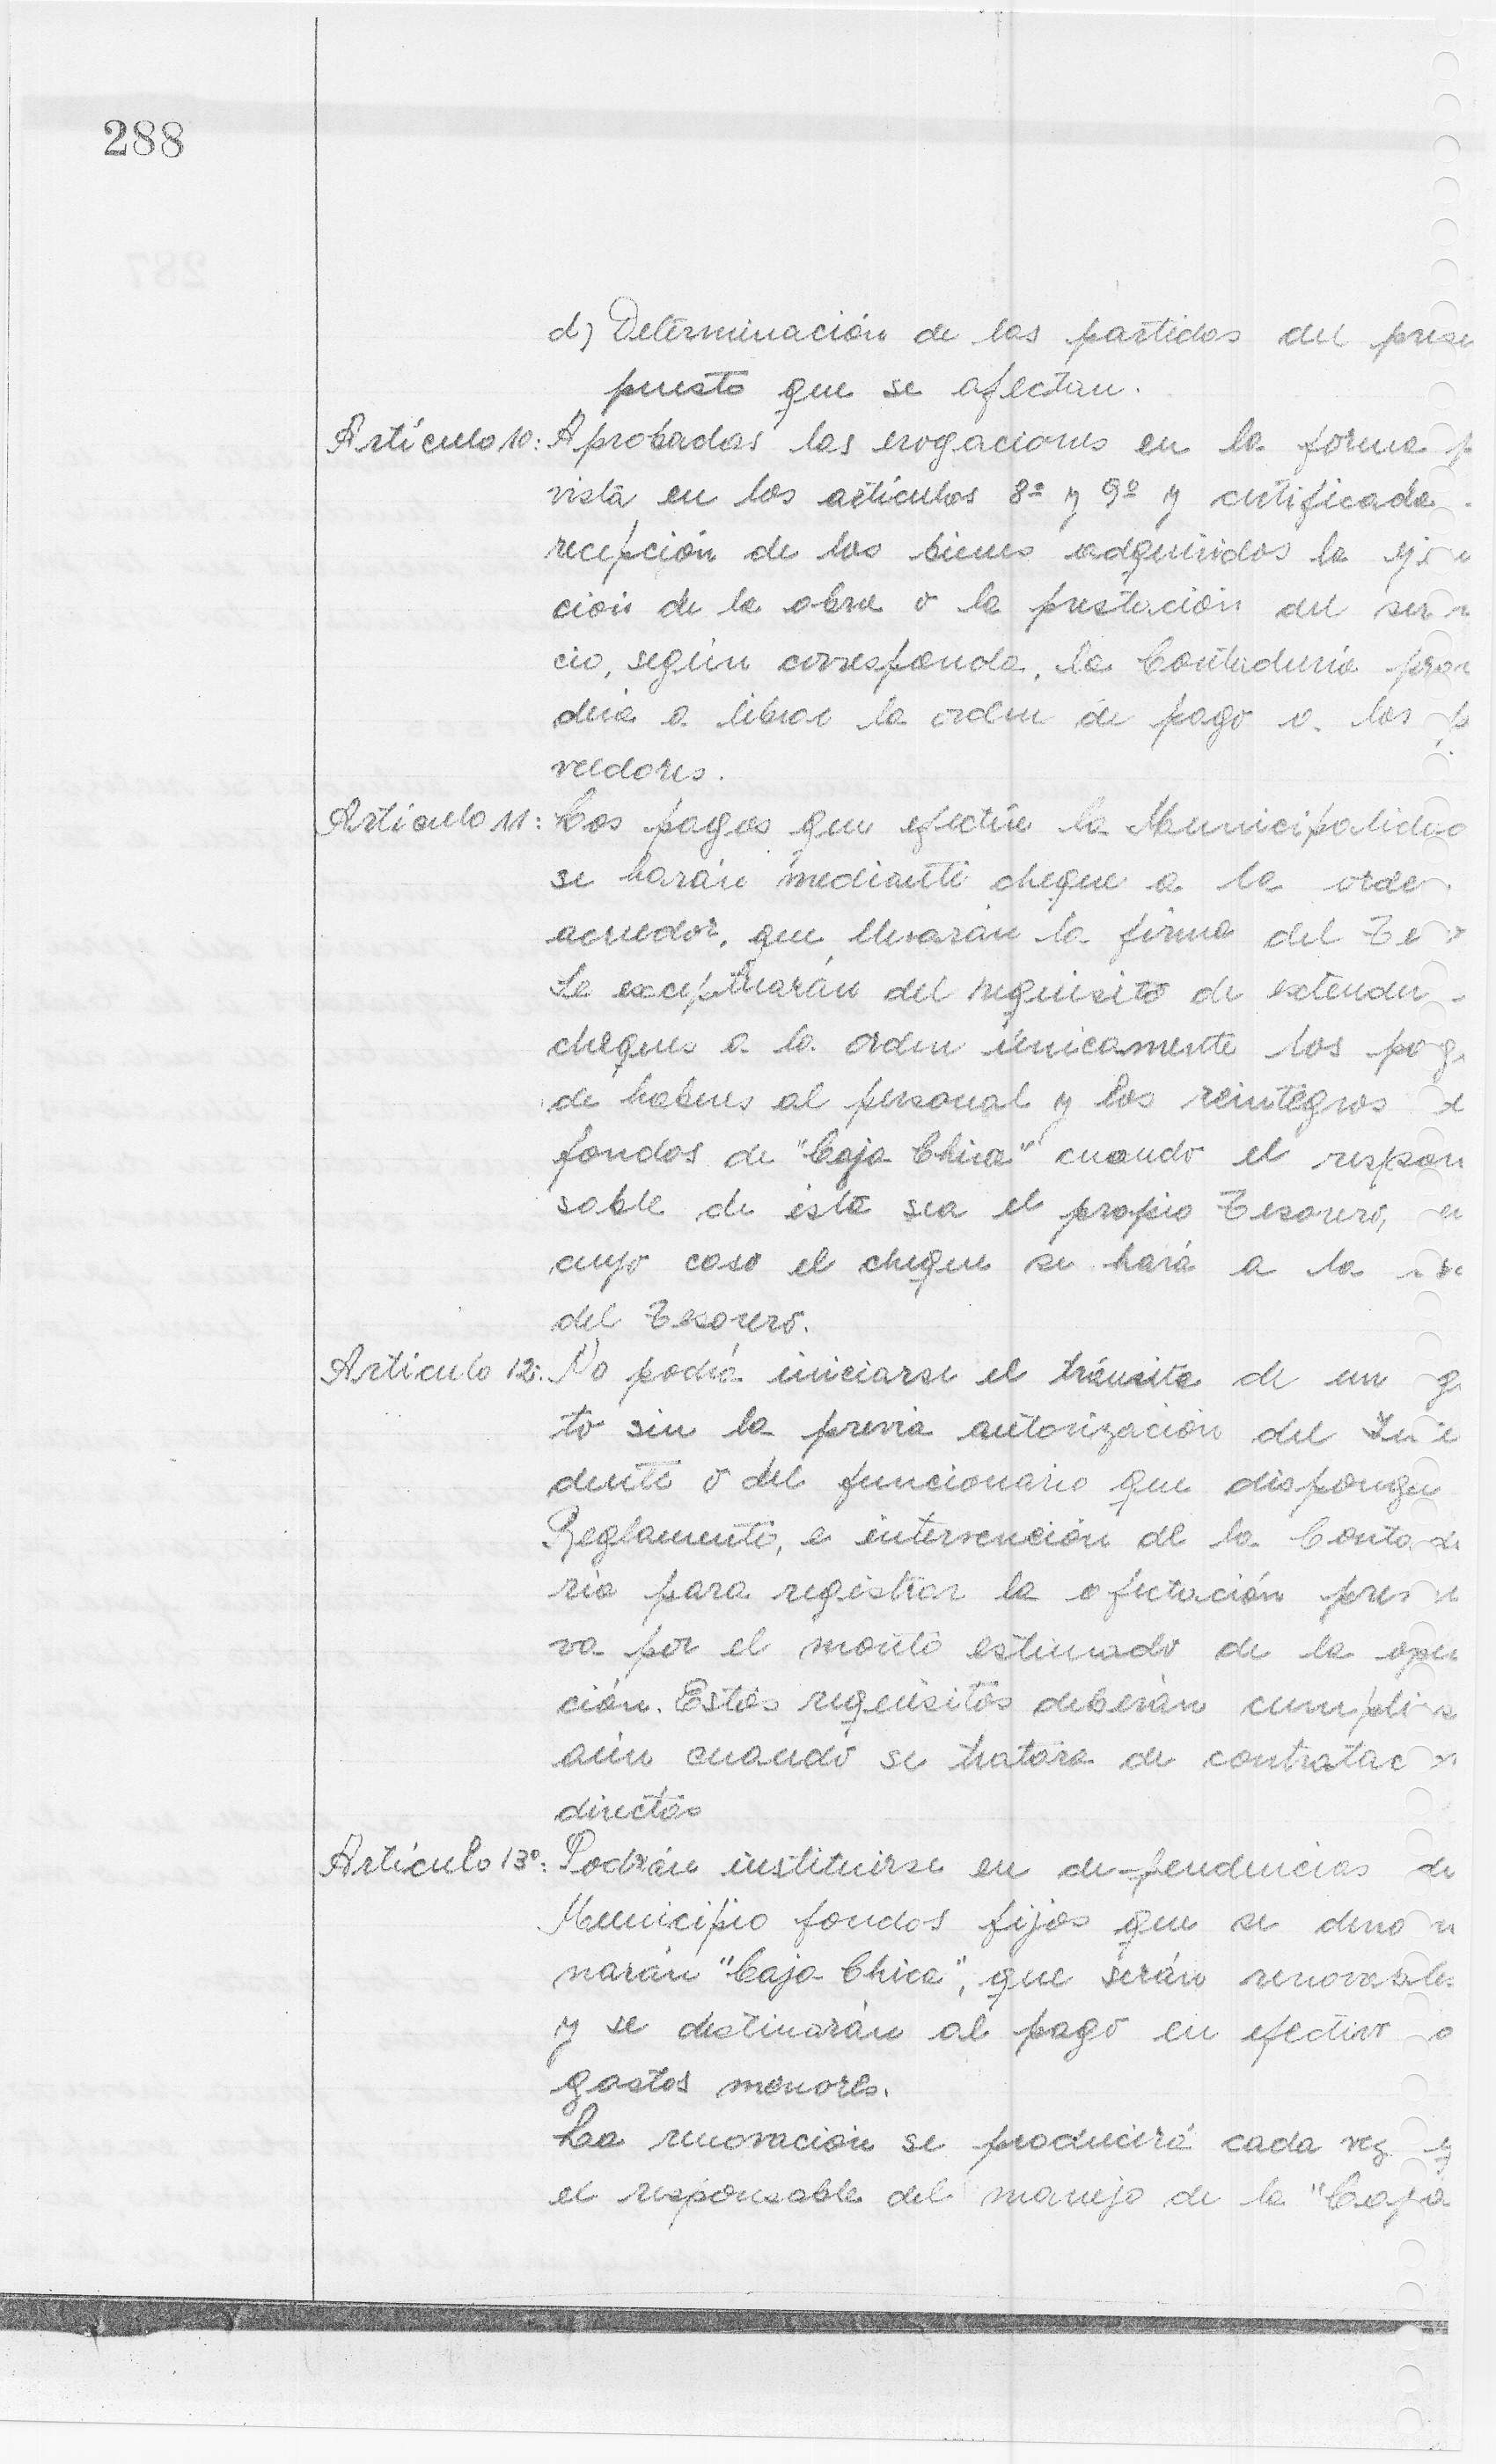 288
d) Determinación de las partidas del presu
puesto que se afectan.
Artículo 10: Aprobadas las erogaciones en la forma p
vista en los artículos 8º y 9º y certificada
recepción de los bienes adquiridos la eje u
ción de la obra o la prestación del ser
cio, según corresponda, la Contaduría pro
derá a librar la orden de pago a los
veedores.
Artículo 11: Los pagos que efectúe la Municipalidad
se harán mediante cheque a la orden
acreedor, que llevarán la firma del Te
Se exceptuarán del requisito de extender
cheques a la orden únicamente los pag
de haberes al personal y los reintegros
fondos de "Caja Chica" cuando el respon
sable de ésta sea el propio Tesorero, en
cuyo caso el cheque se hará a la
del Tesorero.
Artículo 12: No podrá iniciarse el trámite de un g
to sin la previa autorización del In
dente o del funcionario que disponga
Reglamento, e intervención de la Conta
ría para registrar la afectación pre
va por el monto estimado de la oper
ción. Estos requisitos deberán cumplir
aún cuando se tratara de contratac
directas
Artículo 13º: Podrán instituirse en dependencias de
Municipio fondos fijos que se deno
narán "Caja Chica", que serán renovables
y se destinarán al pago en efectivo
gastos menores.
La renovación se producirá cada vez q
el responsable del manejo de la "Caja